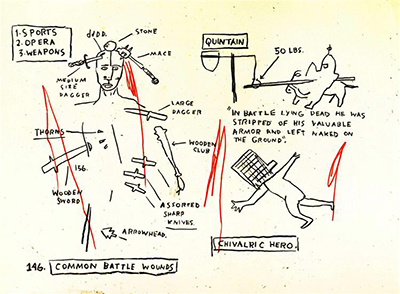 1. SPORTS
2. OPERA
3. WEAPONS
STONE
MACE
MEDIUM
SIZE
DAGGER
LARGE
DAGGER
THORNS
156.
WOODEN
SWORD
WOODEN
CLUB
ASSORTED
SHARP
KNIVES.
ARROWHEAD.
146. COMMON BATTLE WOUNDS
QUINTAIN
50 LBS.
"IN BATTLE LYING DEAD HE WAS
STRIPPED OF HIS VALUABLE
ARMOR AND LEFT NAKED ON
THE GROUND".
CHIVALRIC HERO.